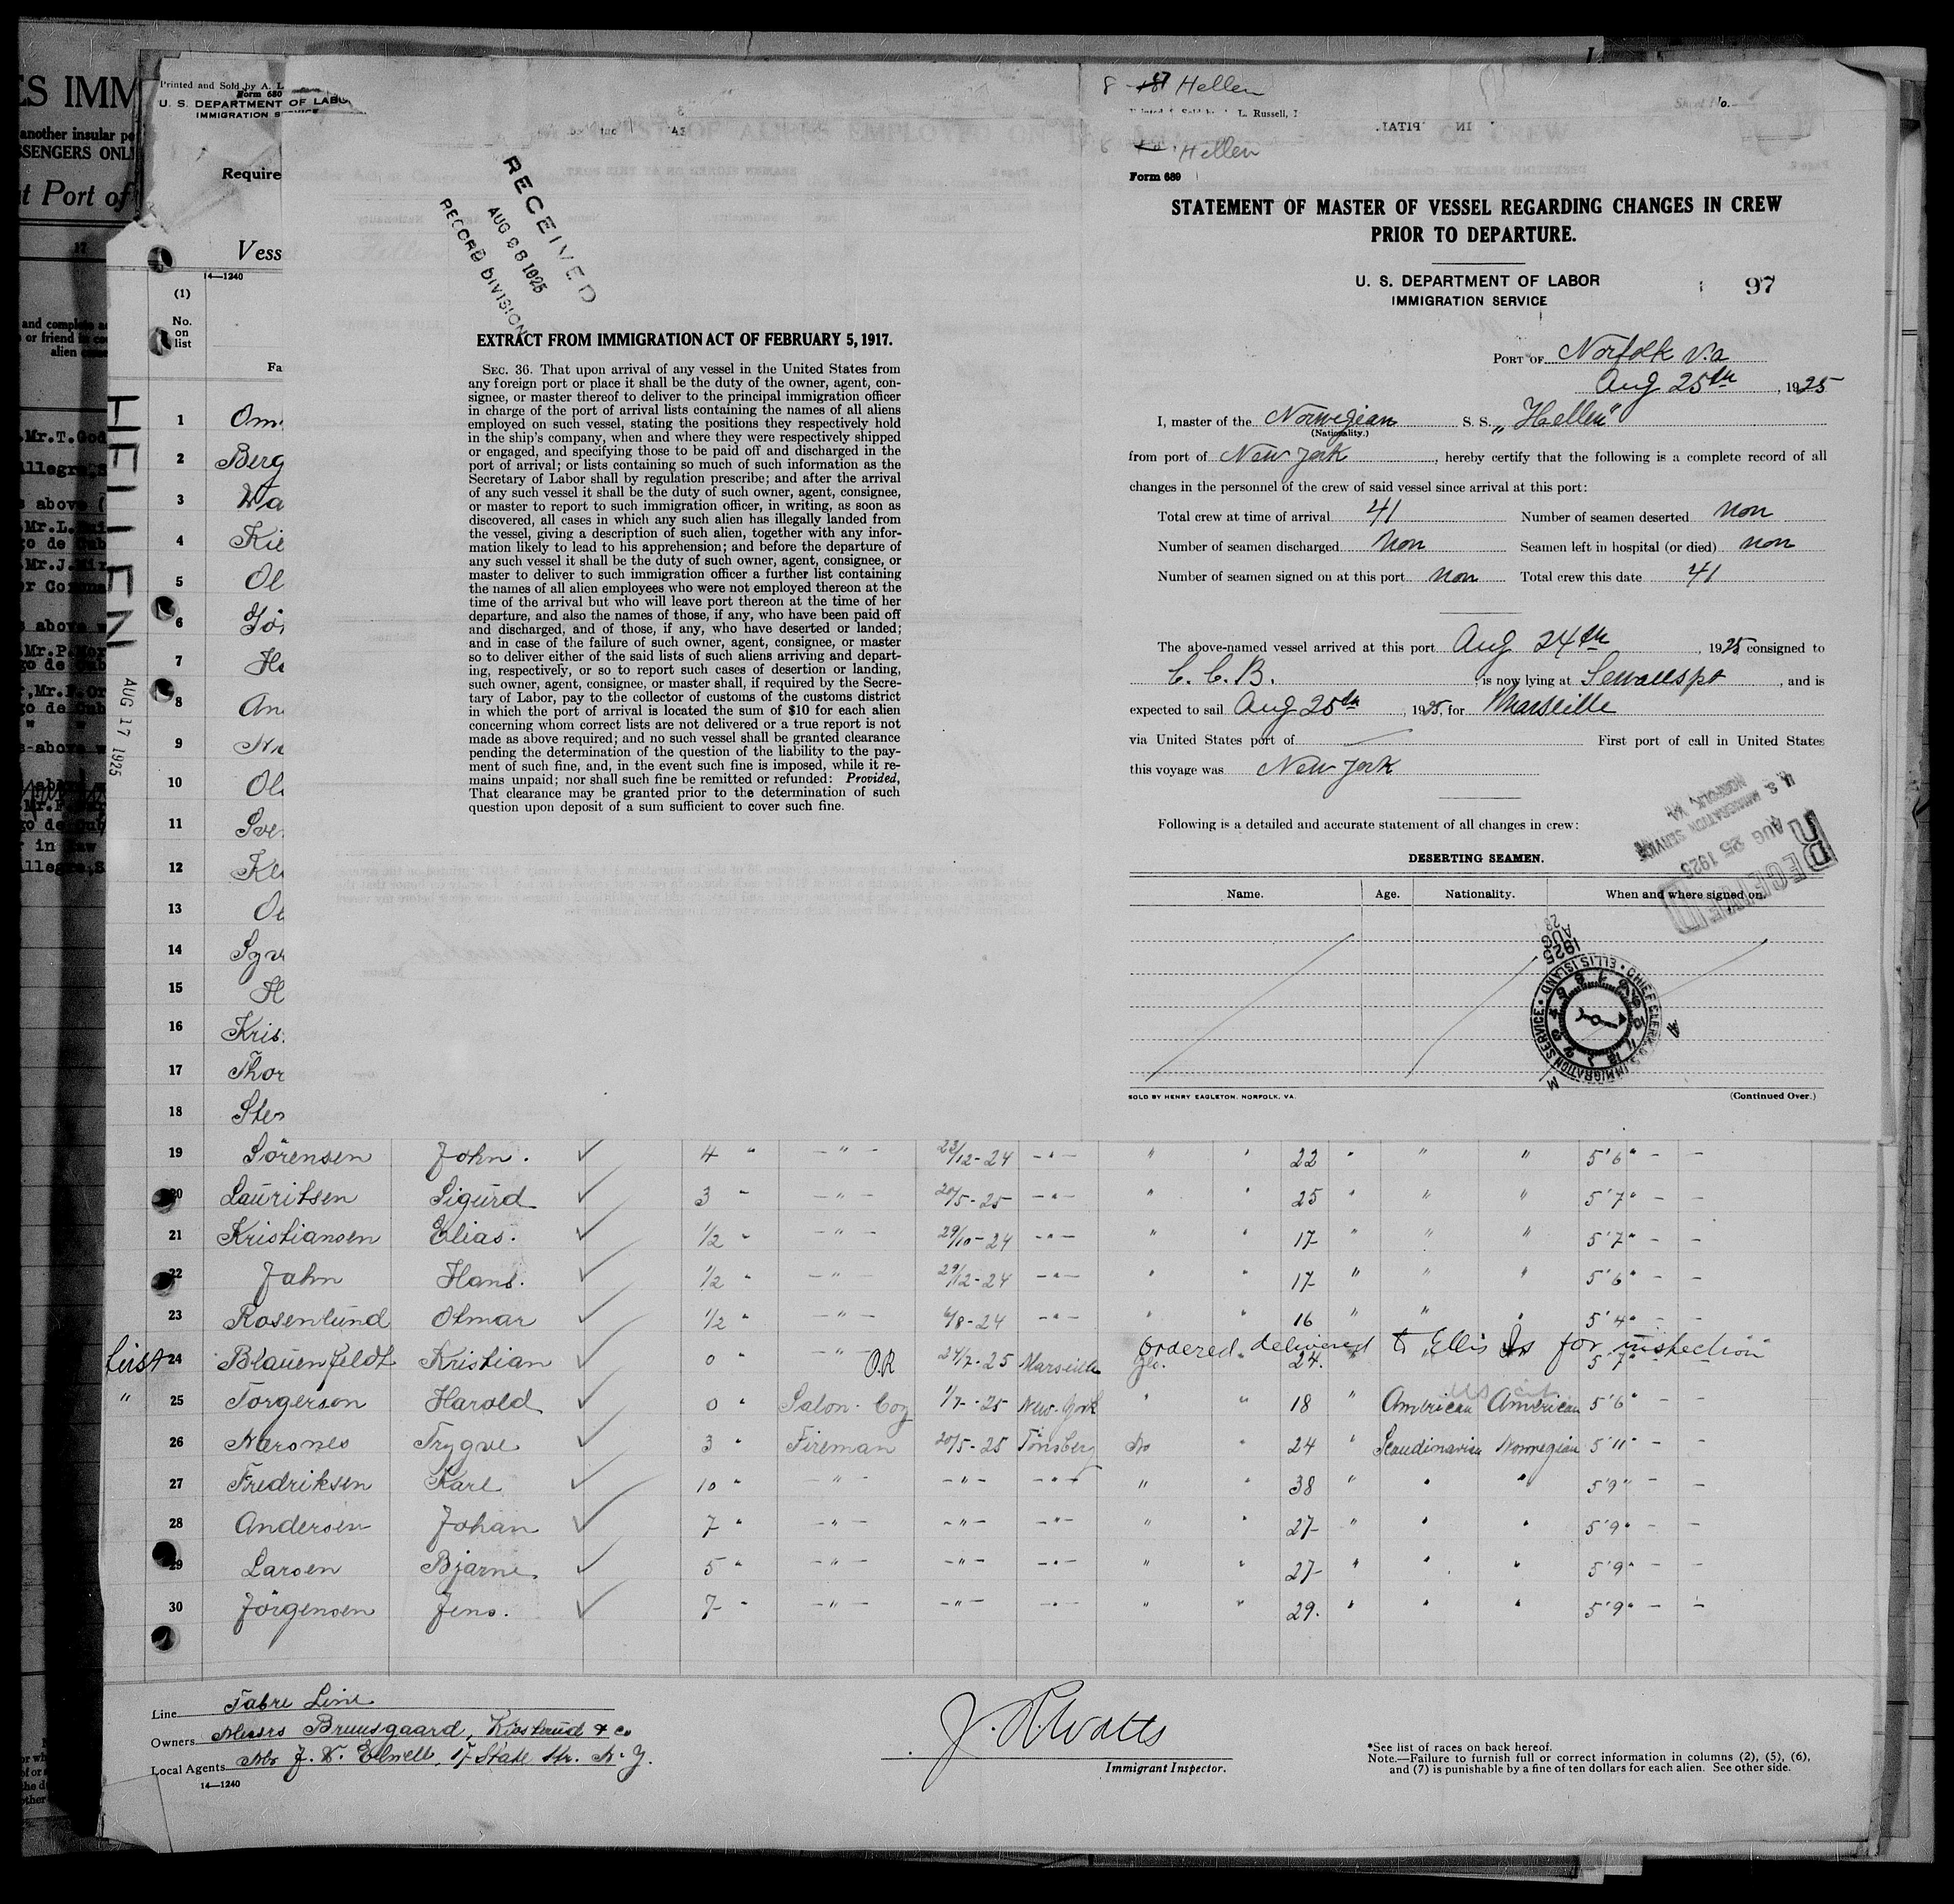 ES IMM
another insular po
SSENGERS ONL
t Port of
17
and complete a
or friend in co
alien came
Mr.T.God
llegre,S
s above (
Mr.L.
o de Cub
Mr.J.Mir
or Corona
s above w
Mr.P.Mor
go de Cub
,Mr.F.Or
go de Cub
" "
s-above w
go de Cub
r in law
llegre,S
Printed and Sold by A. L
Form 680
U. S. DEPARTMENT OF LABO
IMMIGRATION S
Require
Vess
14—1240
(1)
No.
on
list
Fa
HELLEN
AUG 17 1925
1 Om
2 Berg
3 Wa
4 Kie
5 Ol
6
7 Ha
8 An
9
10 Ol
11 Sve
12
13
14
15 H
16 Kris
17 Thor
18 Sten
RECEIVED
AUG 28 1925
RECORD DIVISION
EXTRACT FROM IMMIGRATION ACT OF FEBRUARY 5, 1917.
SEC. 36. That upon arrival of any vessel in the United States from
any foreign port or place it shall be the duty of the owner, agent, con-
signee, or master thereof to deliver to the principal immigration officer
in charge of the port of arrival lists containing the names of all aliens
employed on such vessel, stating the positions they respectively hold
in the ship's company, when and where they were respectively shipped
or engaged, and specifying those to be paid off and discharged in the
port of arrival; or lists containing so much of such information as the
Secretary of Labor shall by regulation prescribe; and after the arrival
of any such vessel it shall be the duty of such owner, agent, consignee,
or master to report to such immigration officer, in writing, as soon as
discovered, all cases in which any such alien has illegally landed from
the vessel, giving a description of such alien, together with any infor-
mation likely to lead to his apprehension; and before the departure of
any such vessel it shall be the duty of such owner, agent, consignee, or
master to deliver to such immigration officer a further list containing
the names of all alien employees who were not employed thereon at the
time of the arrival but who will leave port thereon at the time of her
departure, and also the names of those, if any, who have been paid off
and discharged, and of those, if any, who have deserted or landed;
and in case of the failure of such owner, agent, consignee, or master
so to deliver either of the said lists of such aliens arriving and depart-
ing, respectively, or so to report such cases of desertion or landing,
such owner, agent, consignee, or master shall, if required by the Secre-
tary of Labor, pay to the collector of customs of the customs district
in which the port of arrival is located the sum of $10 for each alien
concerning whom correct lists are not delivered or a true report is not
made as above required; and no such vessel shall be granted clearance
pending the determination of the question of the liability to the pay-
ment of such fine, and, in the event such fine is imposed, while it re-
mains unpaid; nor shall such fine be remitted or refunded: Provided,
That clearance may be granted prior to the determination of such
question upon deposit of a sum sufficient to cover such fine.
8 Hellen
L. Russell,
Sheet No.
Hellen
Form 689
STATEMENT OF MASTER OF VESSEL REGARDING CHANGES IN CREW
PRIOR TO DEPARTURE.
U. S. DEPARTMENT OF LABOR
IMMIGRATION SERVICE
97
PORT OF Norfolk Va
Aug 25th, 1925
I, master of the Norwegian S. S. „Hellen"
(Nationality.)
from port of New York, hereby certify that the following is a complete record of all
changes in the personnel of the crew of said vessel since arrival at this port:
Total crew at time of arrival 41 Number of seamen deserted non
Number of seamen discharged non Seamen left in hospital (or died) non
Number of seamen signed on at this port non Total crew this date 41
The above-named vessel arrived at this port Aug 24th, 1925 consigned to
C. C. B. is now lying at Sewallspt, and is
expected to sail Aug 25th, 1925, for Marseille
via United States port of — First port of call in United States
this voyage was New York
Following is a detailed and accurate statement of all changes in crew:
U. S. IMMIGRATION SERVICE
NORFOLK, VA
AUG 25 1925
RECEIVED
DESERTING SEAMEN.
Name. Age. Nationality. When and where signed on.
1925
AUG
28
CHIEF CLERK U.S. IMMIGRATION SERVICE • ELLIS ISLAND
SOLD BY HENRY EAGLETON, NORFOLK, VA. (Continued Over.)
19 Sörensen John. 4 " — " — 23/12-24 — " — " " 22 " " " 5'6" — —
20 Lauritsen Sigurd 3 " — " — 20/5-25 — " — " " 25 " " " 5'7" — —
21 Kristiansen Elias. 1/2 " — " — 29/10-24 — " — " " 17 " " " 5'7" — —
22 Jahn Hans. 1/2 " — " — 29/12-24 — " — " " 17 " " " 5'6" — —
23 Rosenlund Otmar 1/2 " — " — 6/8-24 — " — " " 16 " " " 5'4" — —
ordered delivered to Ellis Is for inspection
first 24 Blauenfeldt Kristian 0 " — " — O.R 24/7-25 Marseille " 24. " " 5'7"
" 25 Torgerson Harold 0 " Salon-Boy 1/7-25 New-York " " 18 " American American 5'6" —
26 Narsnes Trygve 3 " Fireman 20/5-25 Tönsberg do " 24 " Scandinavian Norwegian 5'11" — —
27 Fredriksen Karl 10 " — " — — " — — " — " " 38 " " " 5'9" — —
28 Andersen Johan 7 " — " — — " — — " — " " 27 " " " 5'9" — —
29 Larsen Bjarne. 5 " — " — — " — — " — " " 27 " " " 5'9" — —
30 Jörgensen Jens. 7 " — " — — " — — " — " " 29. " " " 5'9" — —
Line Fabre Line
Owners Messrs Bruusgaard, Kiøsterud & Co
Local Agents Mr J. W. Elwell, 17 State Str. N.Y.
14—1240
J. R. Watts
Immigrant Inspector.
*See list of races on back hereof.
Note.—Failure to furnish full or correct information in columns (2), (5), (6),
and (7) is punishable by a fine of ten dollars for each alien. See other side.